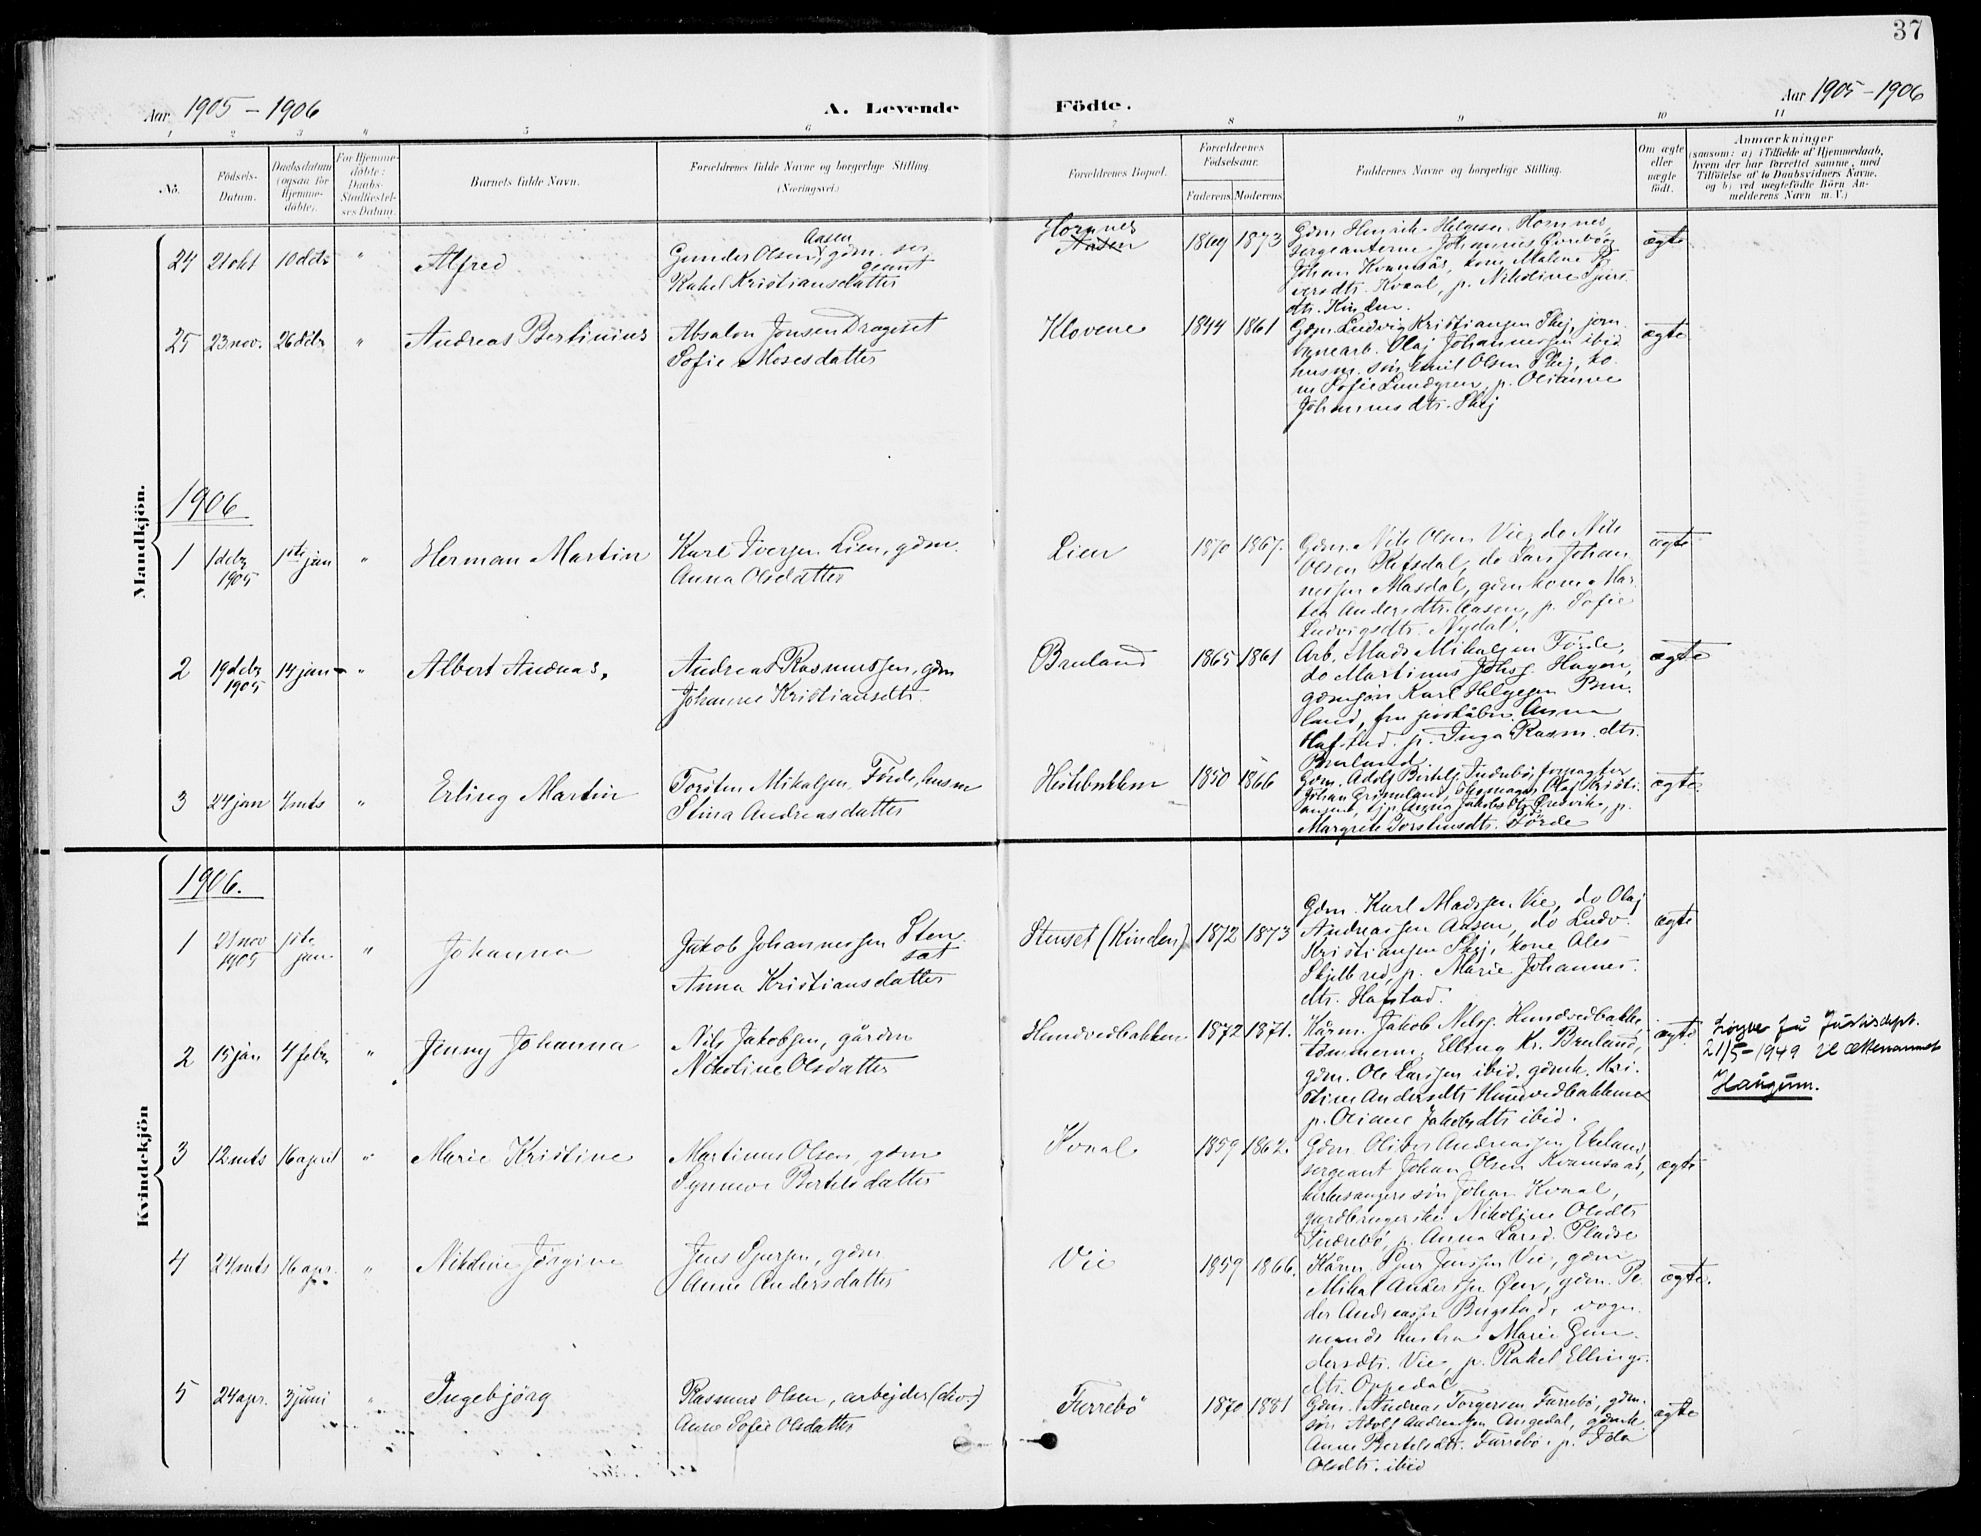 37
Aar 1905 – 1906
A. Levende
Födte.
Aar 1905 – 1906
1 2 3 " 5 6 7 8 9 10 11
No.
Födsels-
Datum.
Daabsdatum
(ogsaa for
Hjemme-
döbte).
For Hjemme-
döbte:
Daabs-
Stadfæstel-
ses Datum.
Barnets fulde Navn.
Forældrenes fulde Navne og borgerlige Stilling.
(Næringsvei.)
Forældrenes Bopæl.
Forældrenes
Födselsaar.
Faderens. Moderens.
Faddernes Navne og borgerlige Stilling.
Om ægte
eller
uægte
födt.
Anmærkninger
(saasom: a) i Tilfælde af Hjemmedaab,
hvem der har forrettet samme, med
Tilföielse af to Daabsvidners Navne,
og b) ved uægtefödte Börn An-
melderens Navn m. V.)
Mandkjön.
24 21 okt 10 dcbr " Alfred
Gunder Olsen Aasen, gdm. ser
geant
Rakel Kristiansdatter
Hornnes
Aasen
1869 1873
Gdm Hinrik Helgesen Hornnes,
sergeanterne Johannes
Johan Kvamsås, kone Malene
dtr. Kvaal, p. Nikoline
dtr. Kinden.
ægte
25 23 nov. 26 dcbr " Andreas Bertinius
Absalon Jonsen Drageset
Sofie Mosesdatter
Klovene
1844 1861
Gdm. Ludvig Kristiansen Skej, jern
banearb. Olaj Johannessen ibid
husm. søn Emil Olsen Skej, ko
ne Sofie Lundgren, p. Olianne
Johannesdtr. Skej
ægte
1906
1 1 dcbr 1ste jan " Herman Martin
1905
Karl Iversen Lien, gdm.
Anna Olsdatter
Lien
1870 1867.
Gdm. Nils Olsen Vie, do Nils
Olsen Refsdal, do Lars Johan
nessen Masdal, gdmkone Mar
ta Andersdtr. Aasen, p. Sofie
Ludvigsdtr. Nydal.
ægte
2 19 dcbr 14 jan " Albert Andreas.
1905
Andreas Rasmussen, gdm
Johanne Kristiansdtr.
Bruland
1865 1861
Arb. Mads Mikalsen Førde,
do Martinus Johs. Hagen,
gdmsøn Karl Helgesen Bru
land, fru postååbn. Anna
Hafstad, p. Inga Rasm. dtr.
Bruland.
ægte
3 24 jan 4 mts " Erling Martin
Torsten Mikalsen Førde, husm
Stina Andreasdatter
Hestebakken
1850 1866
Gdm. Adolf Bertels. Indrebø, forpagter
Johan Grimeland, skomager Olaf Kristi
ansen, tjp. Anna Jakobsdtr. Øredvik, p.
Margrete Torstensdtr. Førde
ægte
Kvindekjön
1906.
1 21 nov 1ste " Johanna
1905 jan.
Jakob Johannessen Sten
set
Anna Kristiansdatter
Stenset (Kinden)
1872 1873
Gdm. Karl Madssen Vie, do Olaj
Andreassen Aasen, do Ludv.
Kristiansen Skej, kone Ales
Skjelbred, p. Marie Johannes
dtr. Hafstad.
ægte
2 15 jan 4 febr " Jenny Johanna
Nils Jakobsen, gårdm
Nikoline Olsdatter
Hundvedbakken
1872 1871.
Kårm. Jakob Nilss. Hundvedbakke,
tømmerm. Elling Kr. Bruland,
gdm. Ole Larssen ibid. gdmk. Kri
stine Andersdtr Hundvedbakken
p. Oliane Jakobsdtr ibid.
ægte
21/5 – 1949
Haugum.
3 12 mts 16 april " Marie Kristine
Martinus Olsen, gdm
Synneve Bertelsdatter
Kvaal
1859 1862.
Gdm. Oliver Andreassen Eteland
sergeant Johan Olsen Kvamsaas,
kirkesangers søn Johan Kvaal,
gardbrugerske Nikoline Olsdtr
Indrebø, p. Anna Larsd. Pladse
ægte
4 24 mts 16 apr. " Nikoline Jørgine
Jens Sjursen, gdm.
Anne Andersdatter
Vie
1859 1866.
Kårm. Sjur Jensen Vie, gdm
Mikal Anderssen Øen, gdm. Pe
der Andreassen Bergstad, vogn
mands hustru Marie Gun
dersdtr. Vie, p. Rakel Ellings
dtr. Oppedal
ægte.
5 24 apr. 3 juni " Ingebjørg
Rasmus Olsen, arbejder (div.)
Anne Sofie Olsdatter
Farrebø
1870 1881
Gdm. Andreas Torgersen Farrebø, gdm.
søn Adolf Andreassen Angedal, gdmk.
Anne Bertelsdtr. Farrebø. p. Ida
Olsdtr. ibid
ægte